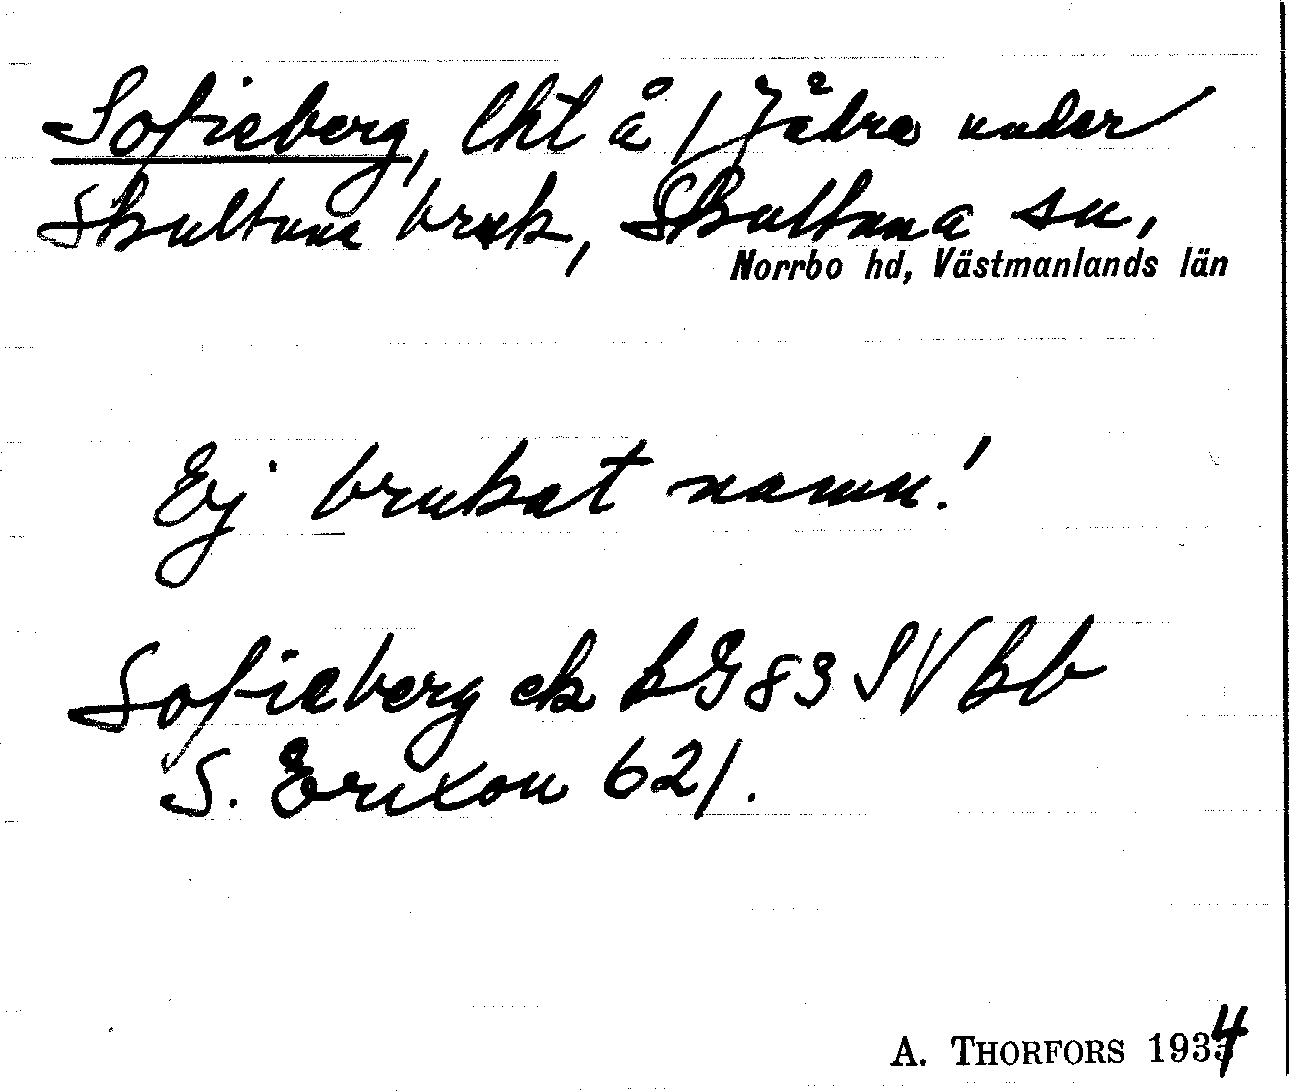 Sofieberg, lht å 1 Jädra under
Skultuna bruk, Skultuna sn,
Norrbo hd, Västmanlands län
Ej brukat namn!
Sofieberg ek LG 83 SV bb
S. Erixon 621.
A. THORFORS 1934